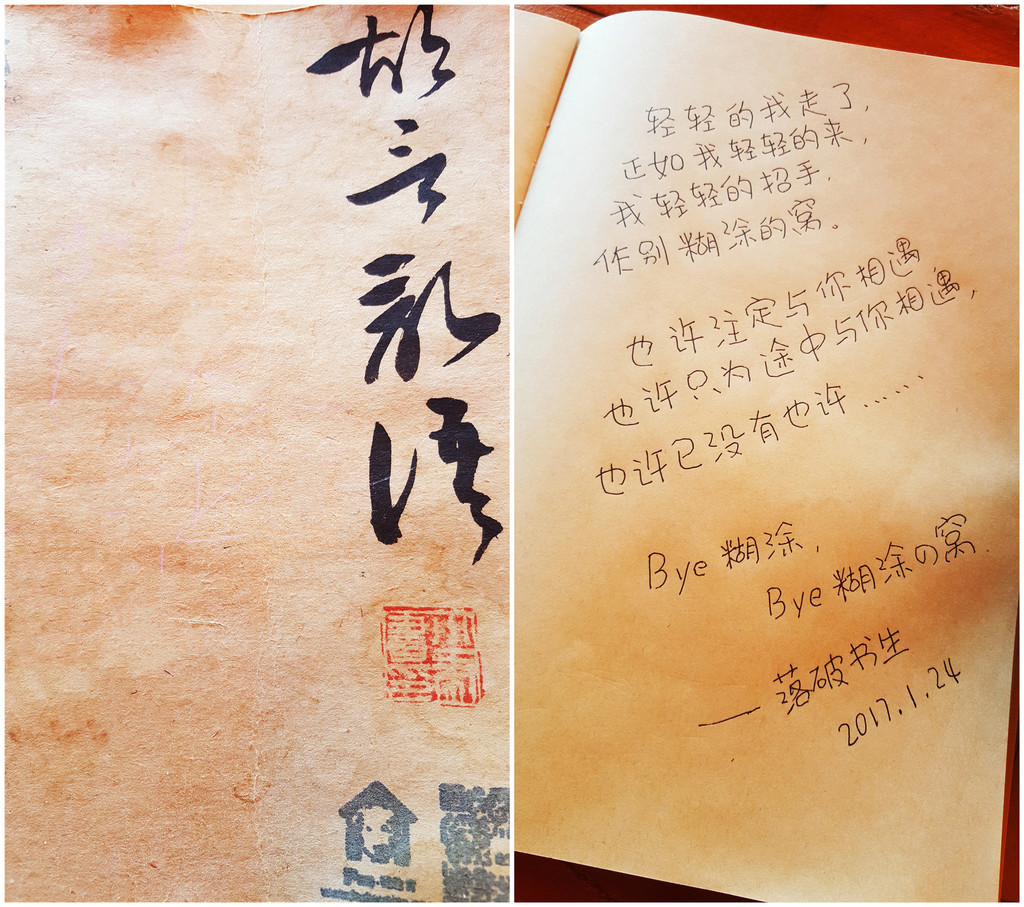 胡言乱语
轻轻的我走了，
正如我轻轻的来，
我轻轻的招手，
作别糊涂的窝。
也许注定与你相遇
也许只为途中与你相遇，
也许已没有也许……
Bye 糊涂，
Bye 糊涂の窝.
——落破书生
2017.1.24